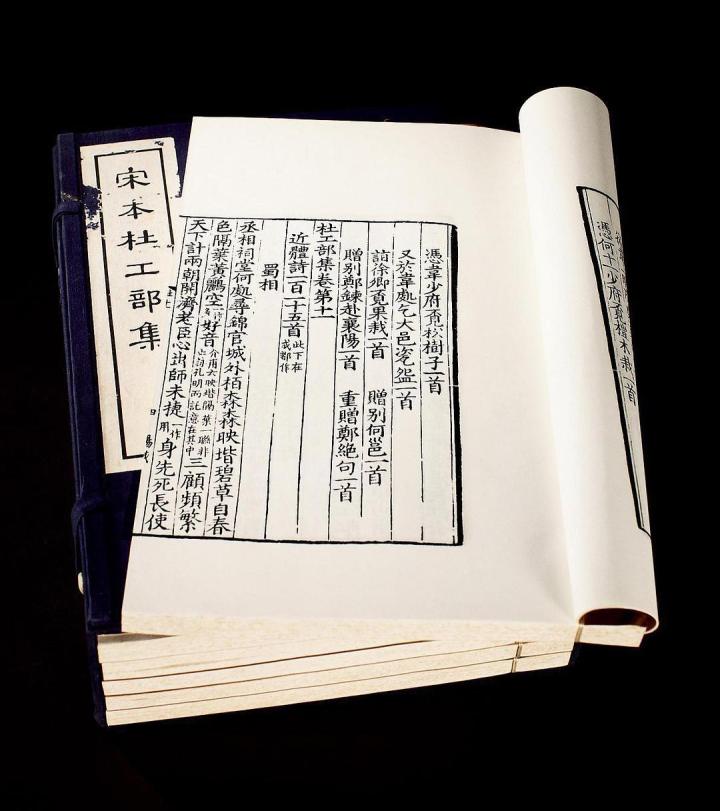 憑何十一少府邕覔榿木栽一首
憑韋少府覔松樹子一首
又於韋處乞大邑瓷盌一首
詣徐卿覔果栽一首　贈別何邕一首
贈別鄭鍊赴襄陽一首　重贈鄭絕句一首
杜工部集卷第十一
近體詩一百一十五首 此下在成都作
蜀相
丞相祠堂何處尋錦官城外栢森森映堦碧草自春
色隔葉黃鸝空好音 介甫云映堦隔葉一聯非止詠孔明而託意在其中 三顧頻繁
天下計兩朝開濟老臣心出師未捷 一作用 身先死長使
宋本杜工部集